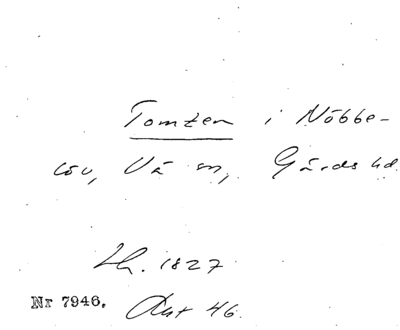 Tomten i Nöbbe-
löv, Vä sn, Gärds hd.
Lh. 1827
Nr 7946. Akt 46.